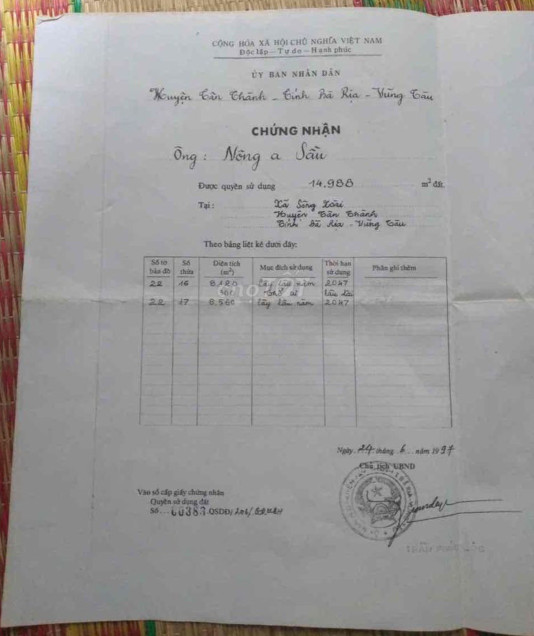 CỘNG HÒA XÃ HỘI CHỦ NGHĨA VIỆT NAM
Độc lập - Tự do - Hạnh phúc
ỦY BAN NHÂN DÂN
Huyện Tân Thành - Tỉnh Bà Rịa - Vũng Tàu
CHỨNG NHẬN
Ông : Nông a Sầu
Được quyền sử dụng 14.988 m² đất
Tại : Xã Sông Xoài
Huyện Tân Thành
Tỉnh Bà Rịa - Vũng Tàu
Theo bảng liệt kê dưới đây:
Số tờ bản đồ Số thửa Diện tích (m²) Mục đích sử dụng Thời hạn sử dụng Phần ghi thêm
22 16 Cây lâu năm 2047
lâu dài
22 17 8.560 Cây lâu năm 2047
Ngày 24 tháng 6 năm 1997
Chủ tịch UBND
Vào sổ cấp giấy chứng nhận
Quyền sử dụng đất
Số 00383 QSDĐ/